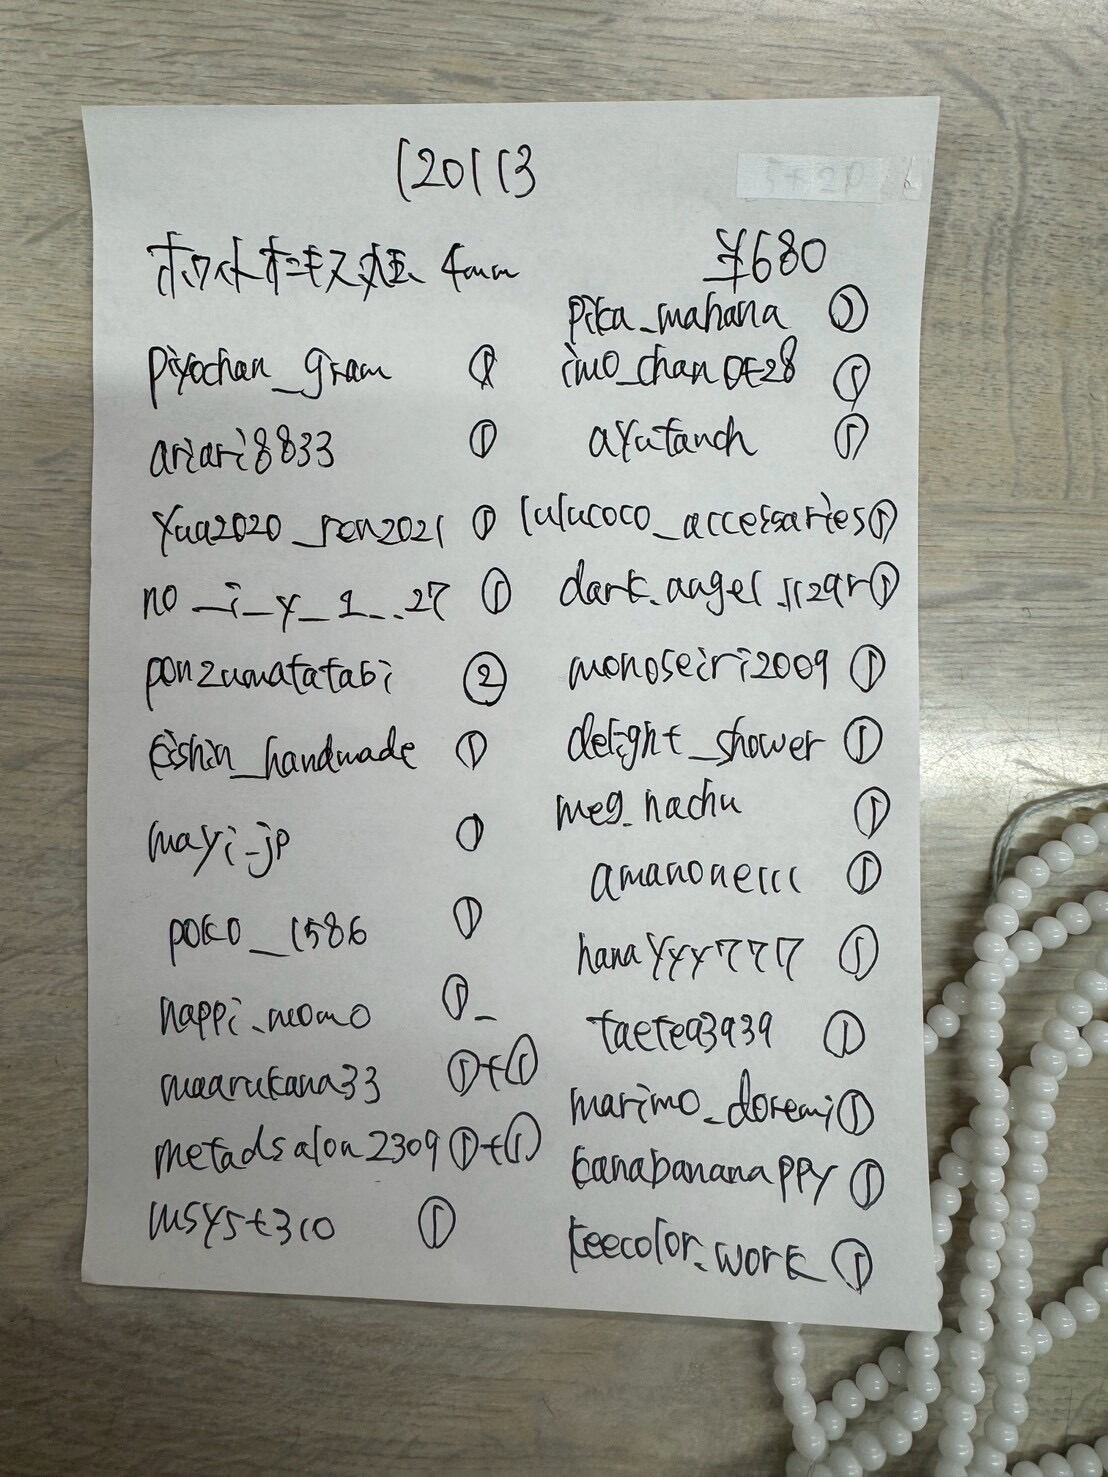 120113
ホワイトオニキス丸玉 4mm ¥680
piyochan_gram ①
ariari8833 ①
yuu2020_ren2021 ①
no_i_y_1_.27 ①
ponzumatatabi ②
eishin_handmade ①
mayi_jp ①
poko_1586 ①
happi.momo ①
maarukana33 ①+①
metadsalon2309 ①+①
msy5t310 ①
pika_mahana ①
imo_chan0528 ①
ayutanch ①
lulucoco_accessaries ①
①
monoseiri2009 ①
delight_shower ①
meg_nachu ①
amanone111 ①
hanayyy777 ①
taetea3939 ①
marimo_doremi ①
kanabananappy ①
keecolor.work ①